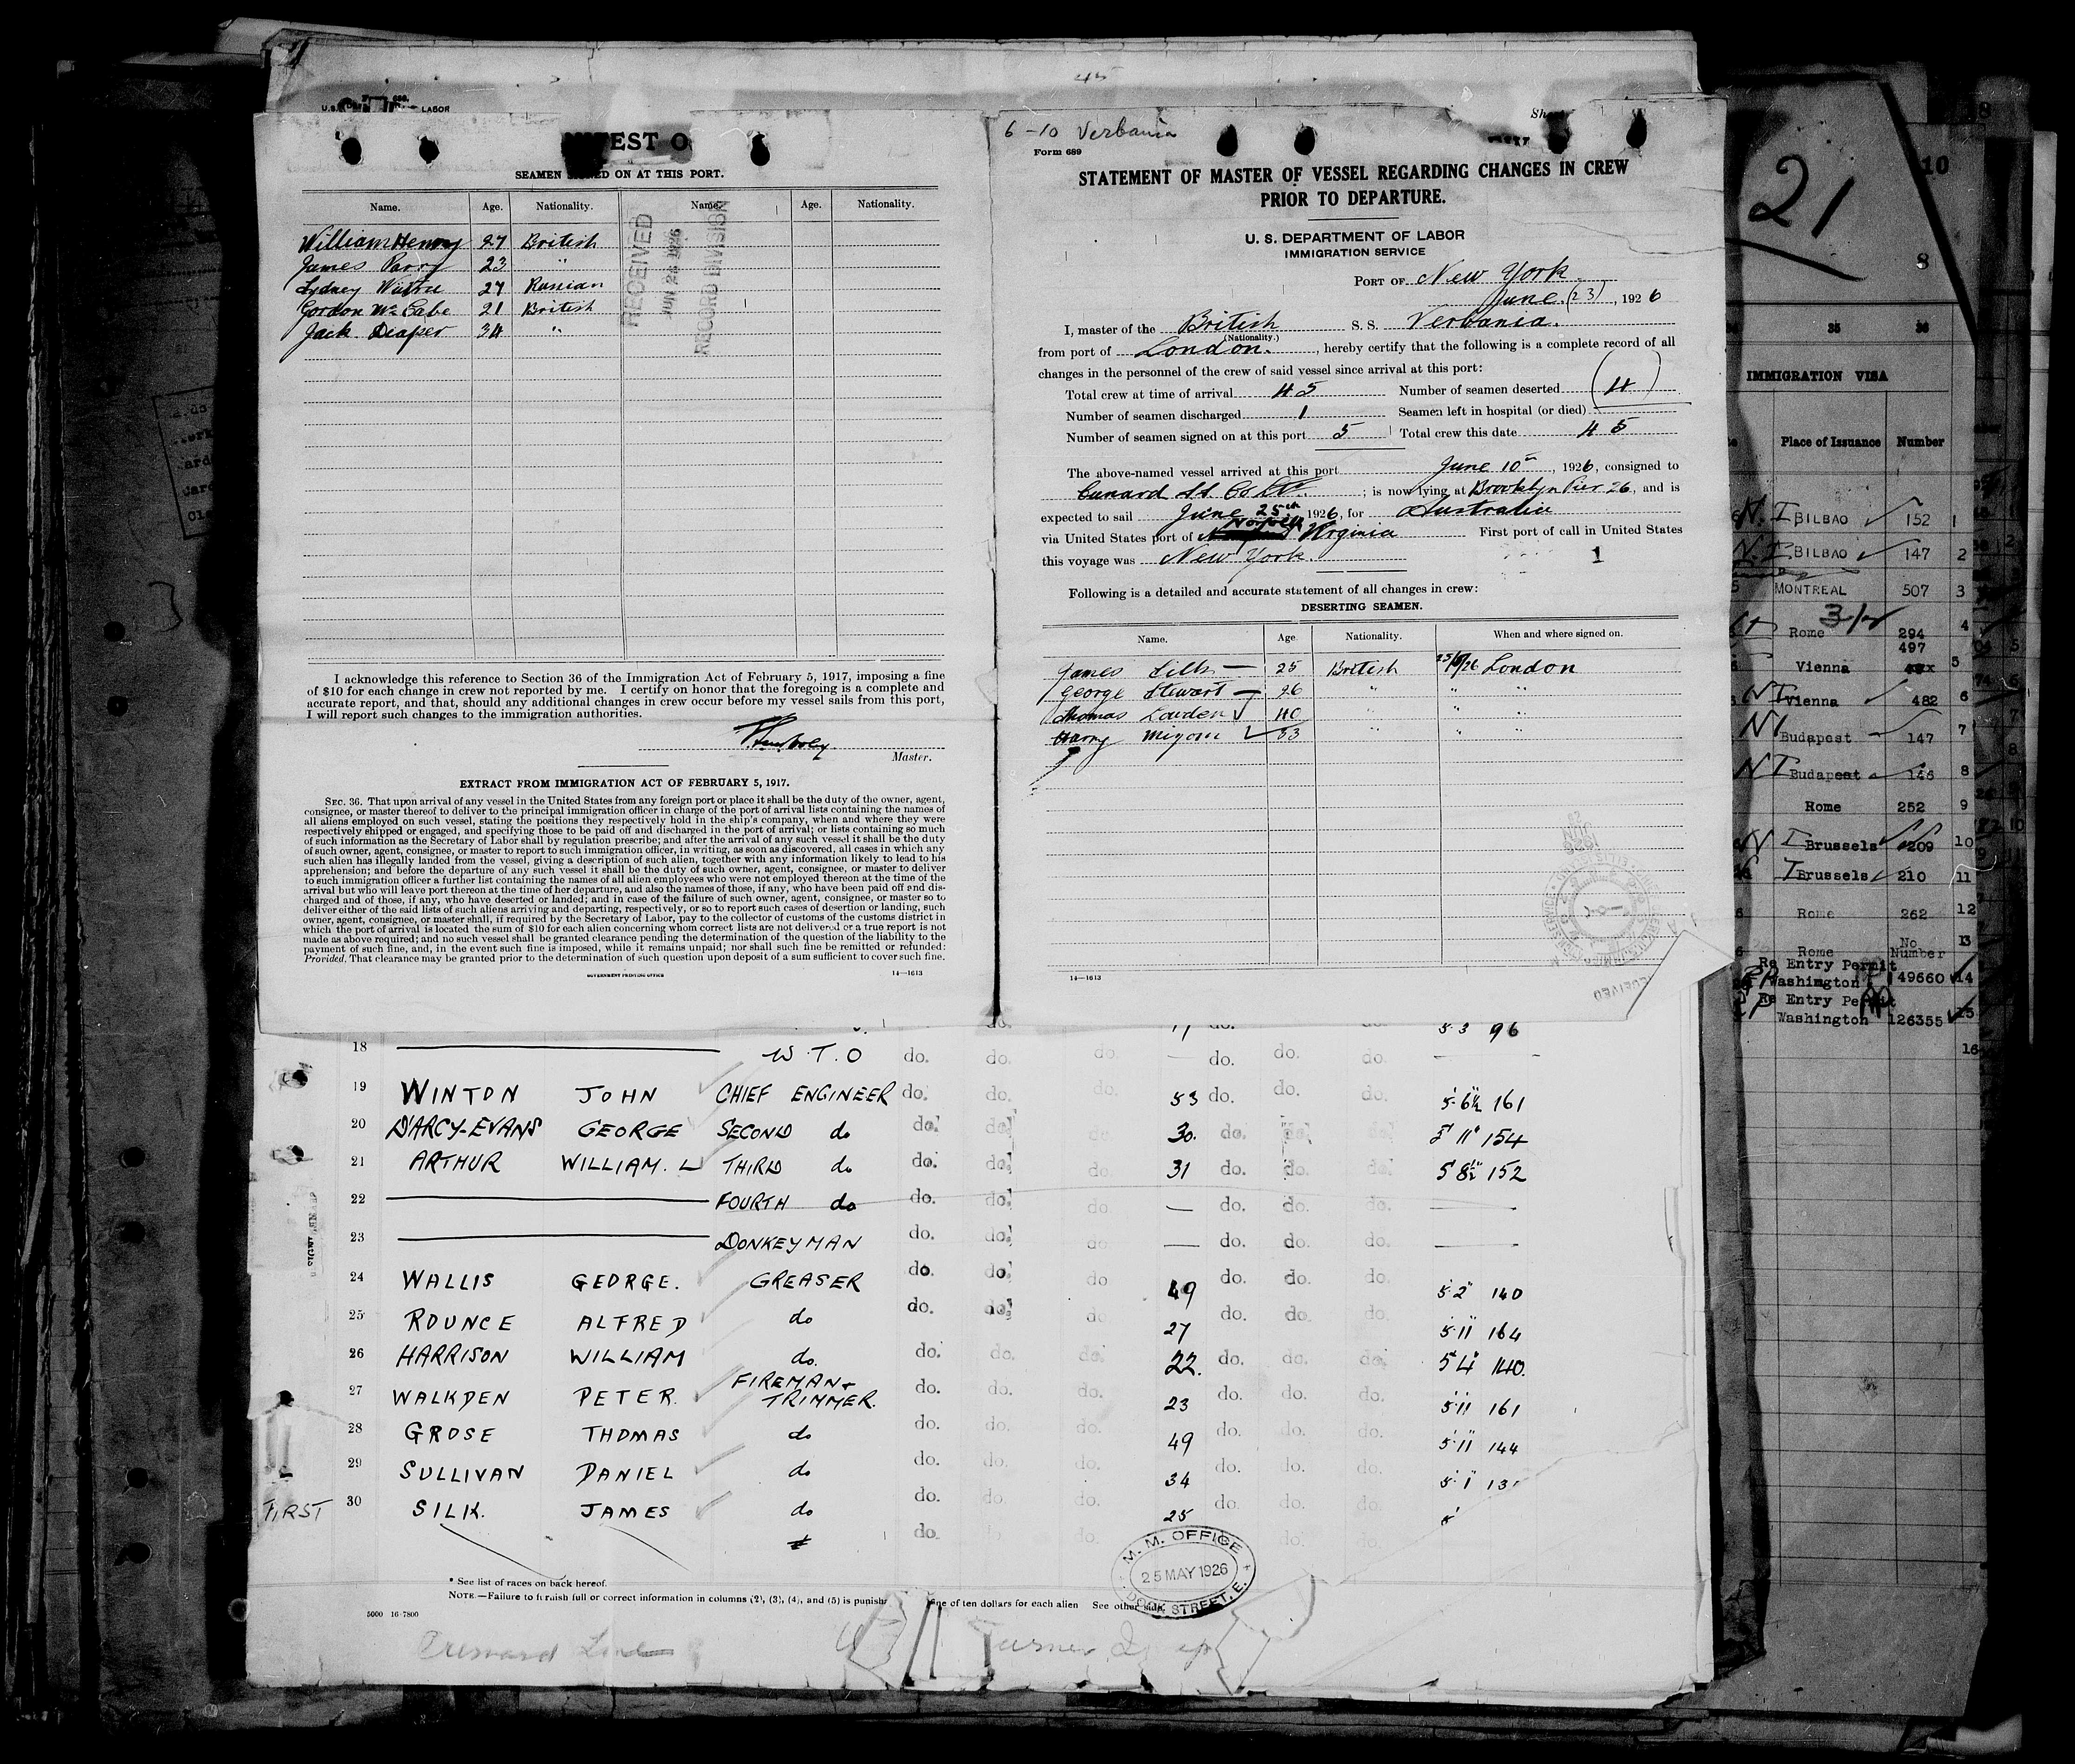 45
U.S. LABOR
EST O
SEAMEN SIGNED ON AT THIS PORT.
Name. Age. Nationality. Name. Age. Nationality.
William Henry 27 British
James Parry 23 "
Sydney 27 Russian
Gordon McCabe 21 British
Jack Draper 34 "
RECEIVED
JUN 1926
RECORD DIVISION
I acknowledge this reference to Section 36 of the Immigration Act of February 5, 1917, imposing a fine
of $10 for each change in crew not reported by me. I certify on honor that the foregoing is a complete and
accurate report, and that, should any additional changes in crew occur before my vessel sails from this port,
I will report such changes to the immigration authorities.
Master.
EXTRACT FROM IMMIGRATION ACT OF FEBRUARY 5, 1917.
SEC. 36. That upon arrival of any vessel in the United States from any foreign port or place it shall be the duty of the owner, agent,
consignee, or master thereof to deliver to the principal immigration officer in charge of the port of arrival lists containing the names of
all aliens employed on such vessel, stating the positions they respectively hold in the ship's company, when and where they were
respectively shipped or engaged, and specifying those to be paid off and discharged in the port of arrival; or lists containing so much
of such information as the Secretary of Labor shall by regulation prescribe; and after the arrival of any such vessel it shall be the duty
of such owner, agent, consignee, or master to report to such immigration officer, in writing, as soon as discovered, all cases in which any
such alien has illegally landed from the vessel, giving a description of such alien, together with any information likely to lead to his
apprehension; and before the departure of any such vessel it shall be the duty of such owner, agent, consignee, or master to deliver
to such immigration officer a further list containing the names of all alien employees who were not employed thereon at the time of the
arrival but who will leave port thereon at the time of her departure, and also the names of those, if any, who have been paid off and dis-
charged and of those, if any, who have deserted or landed; and in case of the failure of such owner, agent, consignee, or master so to
deliver either of the said lists of such aliens arriving and departing, respectively, or so to report such cases of desertion or landing, such
owner, agent, consignee, or master shall, if required by the Secretary of Labor, pay to the collector of customs of the customs district in
which the port of arrival is located the sum of $10 for each alien concerning whom correct lists are not delivered or a true report is not
made as above required; and no such vessel shall be granted clearance pending the determination of the question of the liability to the
payment of such fine, and, in the event such fine is imposed, while it remains unpaid; nor shall such fine be remitted or refunded:
Provided, That clearance may be granted prior to the determination of such question upon deposit of a sum sufficient to cover such fine.
GOVERNMENT PRINTING OFFICE 14—1613
6-10 Verbania
Form 689
STATEMENT OF MASTER OF VESSEL REGARDING CHANGES IN CREW
PRIOR TO DEPARTURE.
U. S. DEPARTMENT OF LABOR
IMMIGRATION SERVICE
PORT OF New York
June (23), 1926
I, master of the British S. S. Verbania.
(Nationality.)
from port of London., hereby certify that the following is a complete record of all
changes in the personnel of the crew of said vessel since arrival at this port:
Total crew at time of arrival 45 Number of seamen deserted (4)
Number of seamen discharged 1 Seamen left in hospital (or died)
Number of seamen signed on at this port 5 Total crew this date 45
The above-named vessel arrived at this port June 10th, 1926, consigned to
Cunard SS. Co Ltd.; is now lying at Brooklyn Pier 26, and is
expected to sail June 25th 1926, for Australia
via United States port of Norfolk Virginia First port of call in United States
this voyage was New York. 1
Following is a detailed and accurate statement of all changes in crew:
DESERTING SEAMEN.
Name. Age. Nationality. When and where signed on.
James Silk — 25 British 25/5/26 London
George Stewart — 26 " " "
Thomas Louden 40 " " "
Harry 33 " " "
14—1613
17 do. do. 5·3 96
18 W.T.O do. do. do. — do. do. do. —
19 WINTON JOHN CHIEF ENGINEER do. do. do. 53 do. do. do. 5·6½ 161
20 D'ARCY-EVANS GEORGE SECOND do do. do. do 30. do. do. do. 5' 11" 154
21 ARTHUR WILLIAM. L THIRD do do. do. do 31 do. do. do. 5 8½ 152
22 FOURTH do do. do. do. — do. do. do. —
23 DONKEYMAN do. do. do — do. do. do. —
24 WALLIS GEORGE. GREASER do. do. do 49 do. do. do. 5·2" 140
25 ROUNCE ALFRED do do. do. do 27 do. do. do. 5·11 164
26 HARRISON WILLIAM do. do. do. do. 22. do. do. do. 5 4 140.
27 WALKDEN PETER. FIREMAN + TRIMMER. do. do. do. 23 do. do. do. 5·11 161
28 GROSE THOMAS do do. do. do. 49 do. do. do. 5·11 144
29 SULLIVAN DANIEL do do. do. do. 34 do. do. do. 5·1
FIRST 30 SILK. JAMES do do. do. do. 25 do. do. do.
do. do. do. do.
M. M. OFFICE
25 MAY 1926
DOCK STREET. E.
* See list of races on back hereof.
NOTE.—Failure to furnish full or correct information in columns (2), (3), (4), and (5) is punish fine of ten dollars for each alien See other side.
5000 16-7800
21
10
8
35 36
IMMIGRATION VISA
Place of Issuance Number
N.I BILBAO 152 1
N.I. BILBAO 147 2
MONTREAL 507 3
Rome 294 4
497
Vienna 5
N I Vienna 482 6
N I Budapest 147 7
N I Budapest 146 8
Rome 252 9
N I Brussels 209 10
I Brussels 210 11
Rome 262 12
Rome No Number 13
Re Entry Permit
Washington 49660 14
Re Entry Permit
Washington 126355 15
16